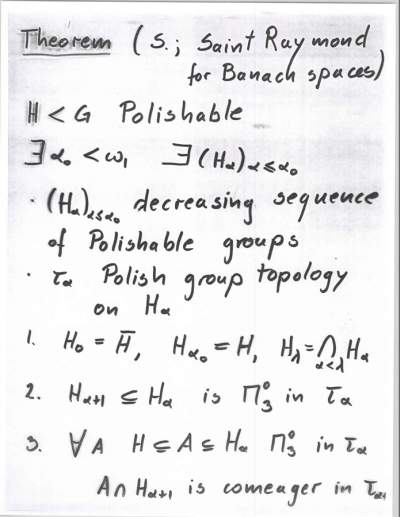 Theorem (S.; Saint Raymond
for Banach spaces)
H < G Polishable
∃α₀ < ω₁ ∃(Hα)α≤α₀
· (Hα)α≤α₀ decreasing sequence
of Polishable groups
· τα Polish group topology
on Hα
1. H₀ = H̄, Hα₀ = H, Hλ = ⋂α<λ Hα
2. Hα+1 ⊆ Hα is Π⁰₃ in τα
3. ∀A H ⊆ A ⊆ Hα Π⁰₃ in τα
A∩Hα+1 is comeager in τα+1